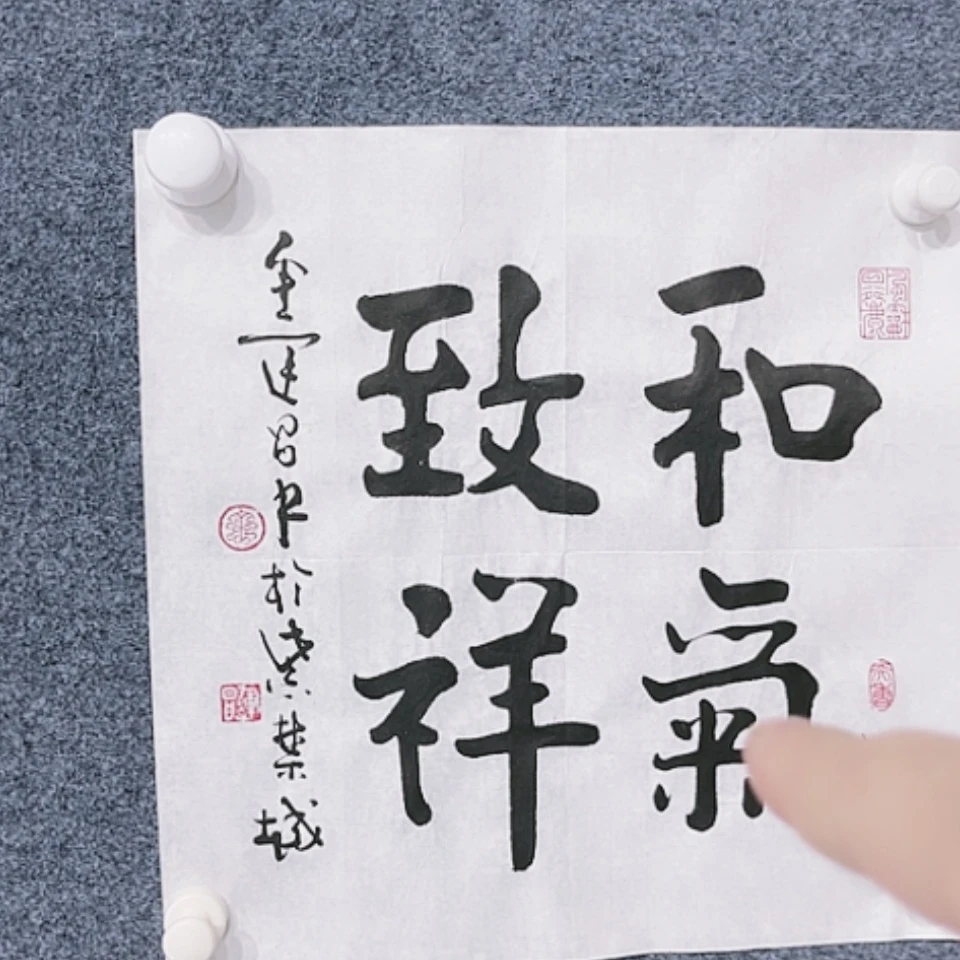 和氣
致祥
金運昌书於紫禁城